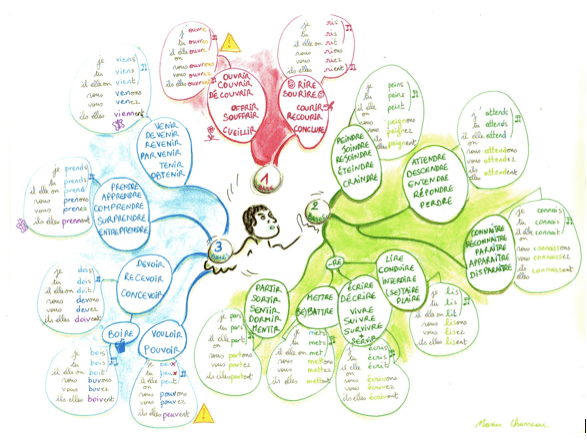 j'ouvre
tu ouvres
il elle on ouvre
nous ouvrons
vous ouvrez
ils elles ouvrent
OUVRIR
COUVRIR
DÉCOUVRIR
OFFRIR
SOUFFRIR
CUEILLIR
je ris
tu ris
il elle on rit
nous rions
vous riez
ils elles rient
RIRE
SOURIRE
COURIR
RECOURIR
CONCLURE
1
BASE
je viens
tu viens
il elle on vient
nous venons
vous venez
ils elles viennent
VENIR
DEVENIR
REVENIR
PARVENIR
TENIR
OBTENIR
je prends
tu prends
il elle on prend
nous prenons
vous prenez
ils elles prennent
PRENDRE
APPRENDRE
COMPRENDRE
SURPRENDRE
ENTREPRENDRE
je dois
tu dois
il elle on doit
nous devons
vous devez
ils elles doivent
DEVOIR
RECEVOIR
CONCEVOIR
BOIRE
je bois
tu bois
il elle on boit
nous buvons
vous buvez
ils elles boivent
VOULOIR
POUVOIR
je peux
tu peux
il elle on peut
nous pouvons
vous pouvez
ils elles peuvent
3
BASES
2
BASES
je peins
tu peins
il elle on peint
nous peignons
vous peignez
ils elles peignent
PEINDRE
JOINDRE
RESTREINDRE
ÉTEINDRE
CRAINDRE
j'attends
tu attends
il elle on attend
nous attendons
vous attendez
ils elles attendent
ATTENDRE
DESCENDRE
ENTENDRE
RÉPONDRE
PERDRE
je connais
tu connais
il elle on connaît
nous connaissons
vous connaissez
ils elles connaissent
CONNAÎTRE
RECONNAÎTRE
PARAÎTRE
APPARAÎTRE
DISPARAÎTRE
-RE
LIRE
CONDUIRE
INTERDIRE
(SE)TAIRE
PLAIRE
je lis
tu lis
il elle on lit
nous lisons
vous lisez
ils elles lisent
ÉCRIRE
DÉCRIRE
VIVRE
SUIVRE
SURVIVRE
+
SERVIR
j'écris
tu écris
il elle on écrit
nous écrivons
vous écrivez
ils elles écrivent
METTRE
(SE)BATTRE
je mets
tu mets
il elle on met
nous mettons
vous mettez
ils elles mettent
PARTIR
SORTIR
SENTIR
DORMIR
MENTIR
je pars
tu pars
il elle on part
nous partons
vous partez
ils elles partent